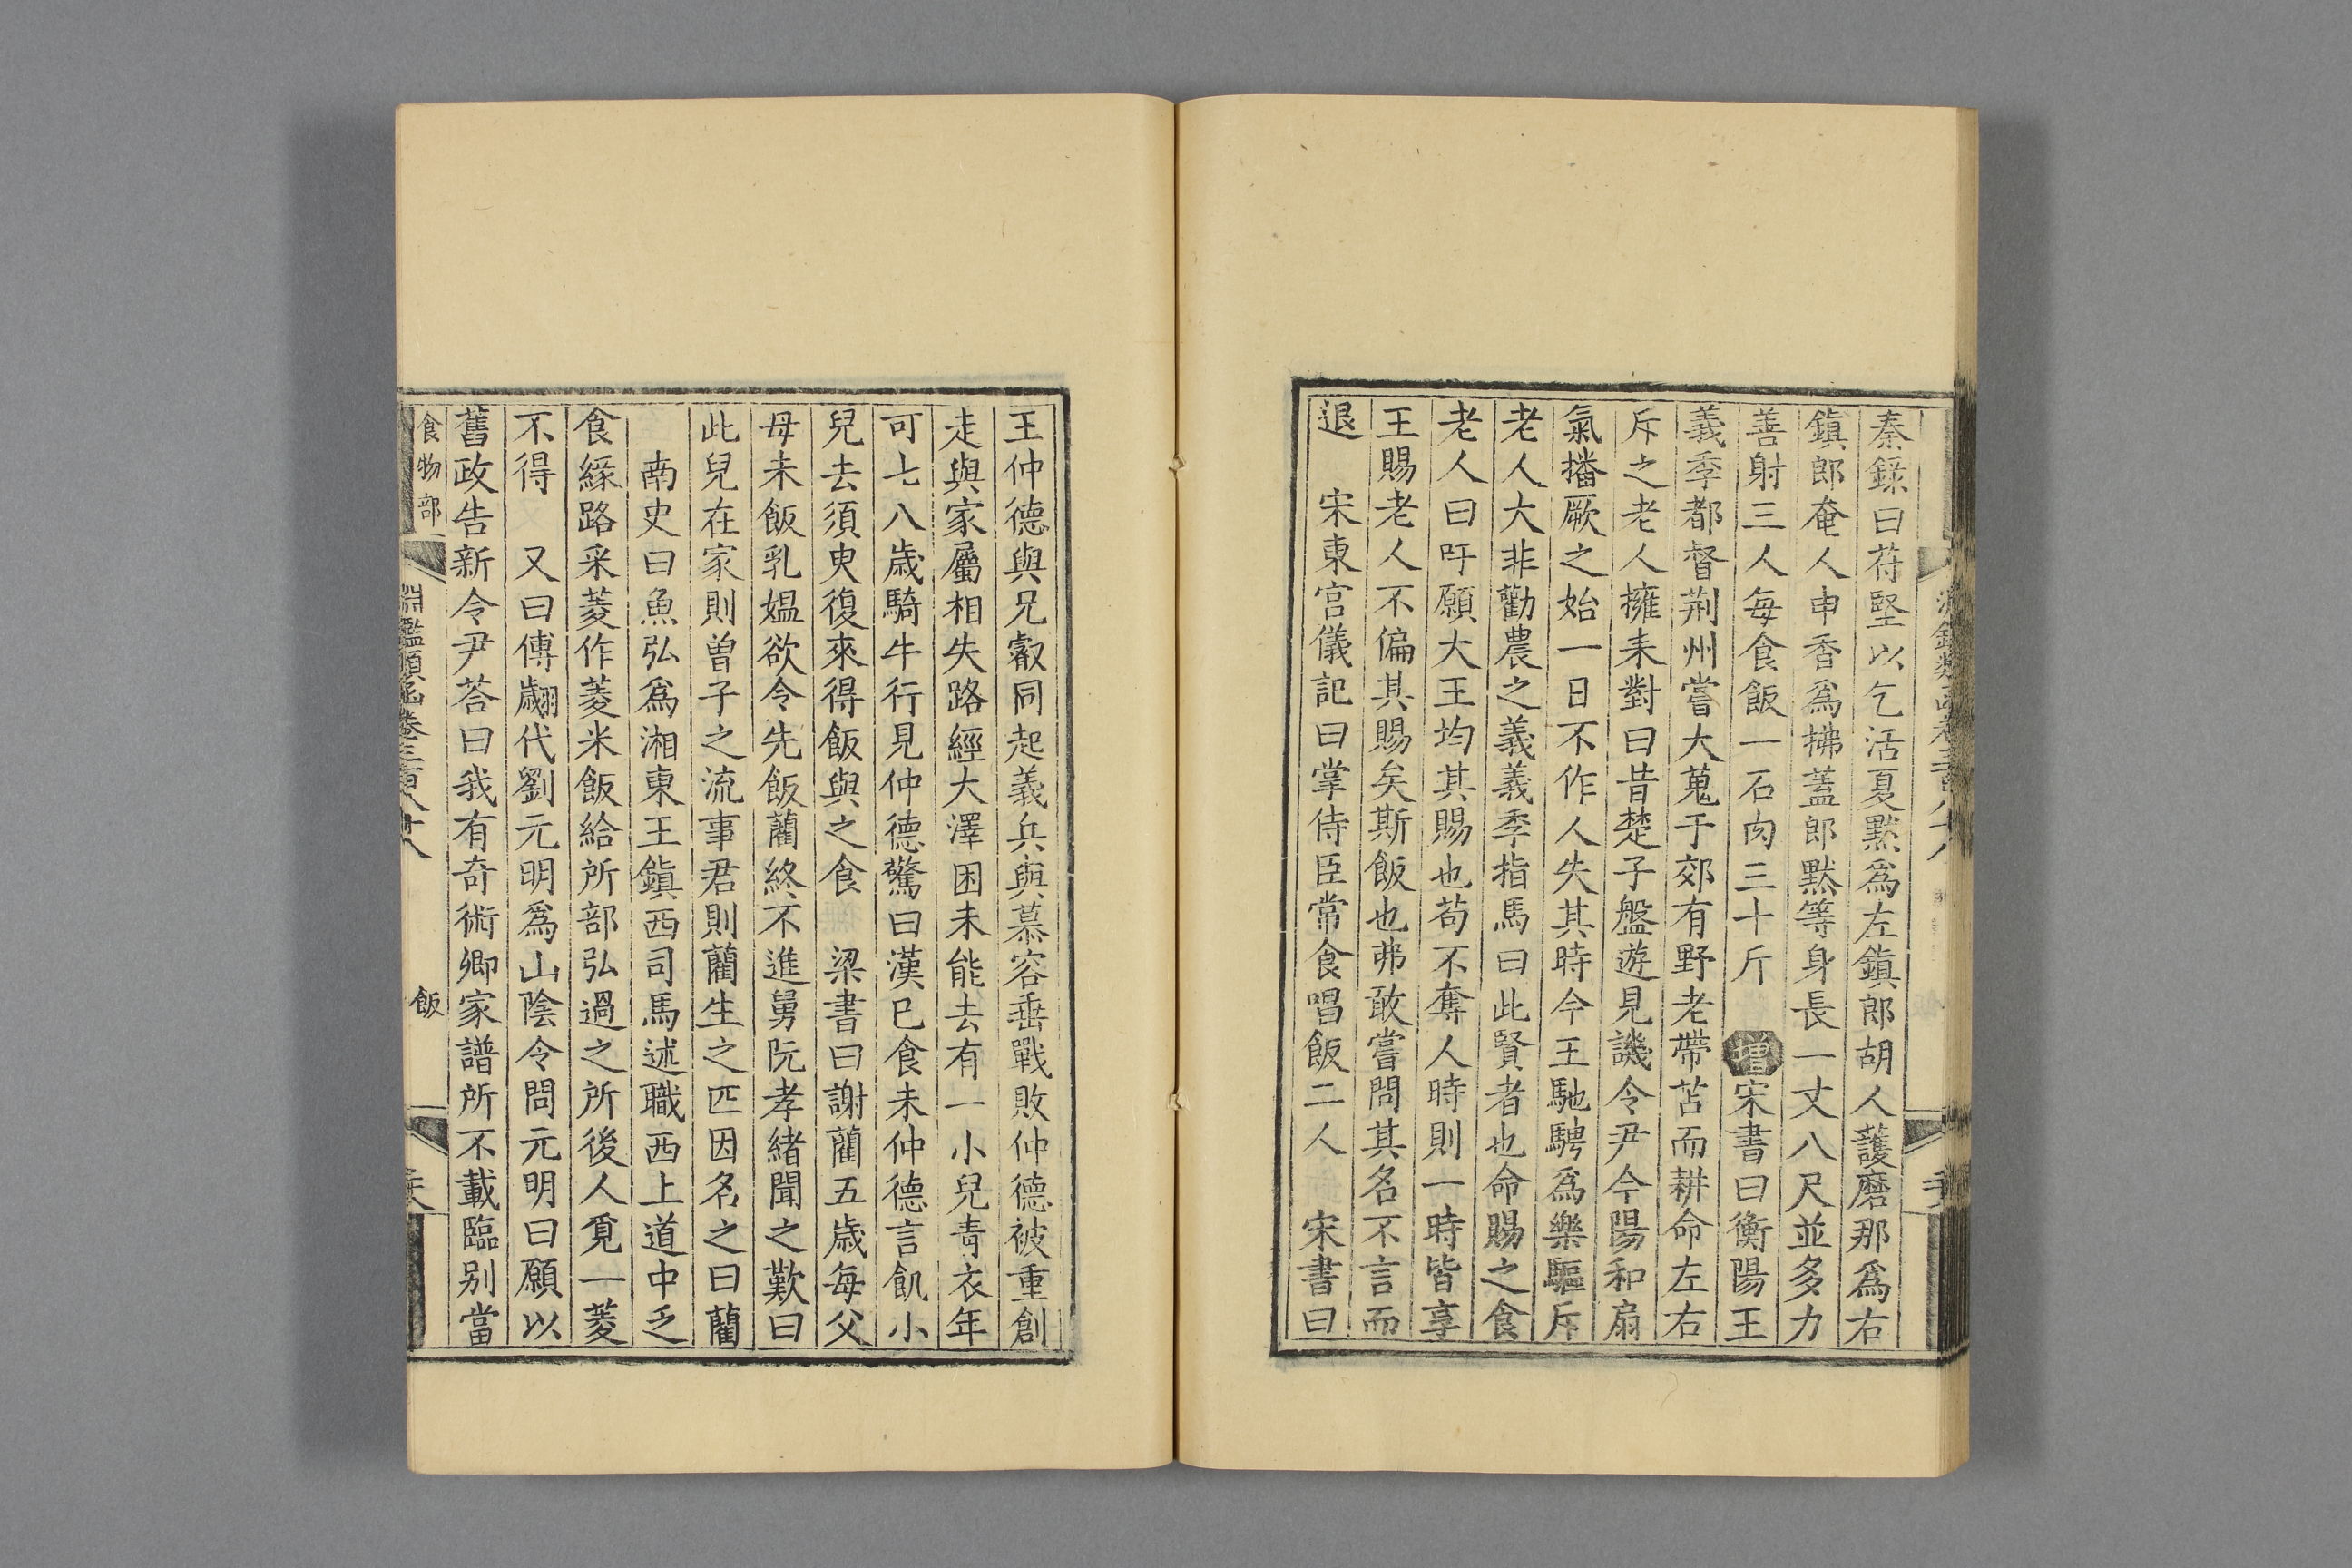 秦錄曰苻堅以乞活夏黙爲左鎭郎胡人䕶磨那爲右
鎭郎奄人申香爲拂蓋郎黙等身長一丈八尺並多力
善射三人每食飯一石肉三十斤　增宋書曰衡陽王
義季都督荆州嘗大蒐于郊有野老帶苫而耕命左右
斥之老人擁耒對曰昔楚子盤遊見譏令尹今陽和扇
氣播厥之始一日不作人失其時今王馳騁爲樂驅斥
老人大非勸農之義義季指馬曰此賢者也命賜之食
老人曰吁願大王均其賜也苟不奪人時則一時皆享
王賜老人不偏其賜矣斯飯也弗敢嘗問其名不言而
退　宋東宮儀記曰掌侍臣常食唱飯二人　宋書曰
王仲德與兄叡同起義兵與慕容垂戰敗仲德被重創
走與家屬相失路經大澤困未能去有一小兒青衣年
可七八歲騎牛行見仲德驚曰漢已食未仲德言飢小
兒去須臾復來得飯與之食　梁書曰謝藺五歲每父
母未飯乳媼欲令先飯藺終不進舅阮孝緒聞之歎曰
此兒在家則曾子之流事君則藺生之匹因名之曰藺
南史曰魚弘爲湘東王鎭西司馬述職西上道中乏
食緣路采菱作菱米飯給所部弘過之所後人覓一菱
不得　又曰傅翽代劉元明爲山陰令問元明曰願以
舊政告新令尹荅曰我有奇術卿家譜所不載臨别當
食物部
淵鑑類函卷三百八十八
飯